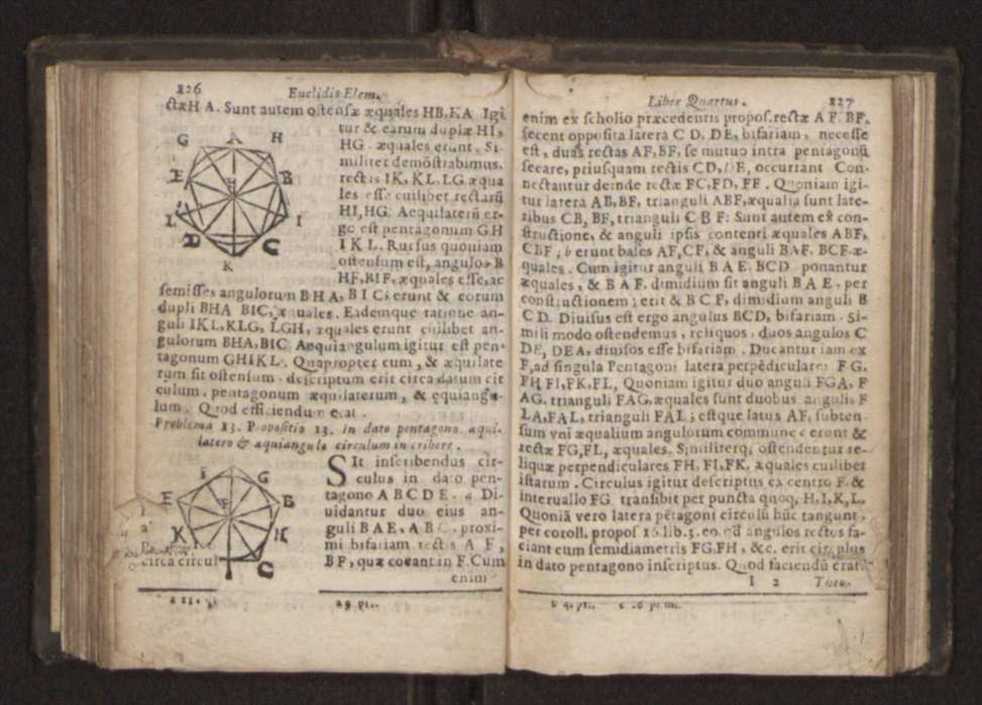 126
Euclidis Elem.
ctæ H A. Sunt autem ostensæ æquales HB, KA Igi
tur & earum duplæ HI,
HG æquales erunt. Si-
militer demõstrabimus,
rectis IK, KL, LG æqua
les esse cuilibet rectarũ
HI, HG. Aequilaterũ er-
go est pentagonum GH
I K L. Rursus quoniam
ostensum est, angulos B
HF, BIF, æquales esse, ac
semisses angulorum BHA, BIC; erunt & eorum
dupli BHA BIC, æquales. Eademque ratione an-
guli IKL, KLG, LGH, æquales erunt cuilibet an-
gulorum BHA, BIC. Aequiangulum igitur est pen-
tagonum GHIKL. Quapropter cum, & æquilate
rum sit ostensum, descriptum erit circa datum cir
culum, pentagonum æquilaterum, & equiangu-
lum. Quod efficiendum erat.
Problema 13. Propositio 13. in dato pentagono æqui-
latero & æquiangulo circulum inscribere.
SIt inscribendus cir-
culus in dato pen-
tagono A B C D E. a Di-
uidantur duo eius an-
guli BAE, ABC, proxi-
mi bifariam rectis A F,
BF, quæ coeant in F. Cum
enim
G A H
E B
F
L I
D C
K
I G
E B
F
K H
C
circa circul
a
Liber Quartus.
127
enim ex scholio præcedentis propos. rectæ A F. BF,
secent opposita latera C D, DE, bifariam, necesse
est, duas rectas AF, BF, se mutuo intra pentagonũ
secare, priusquam rectis CD, DE, occurrant Con-
nectantur deinde rectæ FC, FD, FE. Quoniam igi-
tur latera AB, BF, trianguli ABF, æqualia sunt late-
ribus CB, BF, trianguli C B F: Sunt autem ex con-
structione, & anguli ipsis contenti æquales ABF,
CBF, b erunt bases AF, CF, & anguli BAF, BCF æ-
quales. Cum igitur anguli B A E, BCD ponantur
æquales, & B A F, dimidium sit anguli B A E, per
constructionem; erit & B C F, dimidium anguli B
C D. Diuisus est ergo angulus BCD, bifariam. Si-
mili modo ostendemus, reliquos, duos angulos C
DE, DEA, diuisos esse bifariam. Ducantur iam ex
F, ad singula Pentagoni latera perpẽdiculares F G,
FH FI, FK, FL, Quoniam igitur duo anguli FGA, F
AG, trianguli FAG, æquales sunt duobus angulis F
LA, FAL, trianguli FAL; estque latus AF, subten-
sum vni æqualium angulorum commune c erunt &
rectæ FG, FL, æquales. Similiterq; ostendentur re-
liquæ perpendiculares FH, FI, FK, æquales cuilibet
istarum. Circulus igitur descriptus ex centro F. &
interuallo FG transibit per puncta quoq, H, I, K, L.
Quoniã vero latera pẽtagoni circulũ hũc tangunt,
per coroll. propos 16. lib. 3. eo qd angulos rectos fa-
ciant cum semidiametris FG, FH, &c. erit circulus
in dato pentagono inscriptus. Quod faciendũ erat.
I 2
Theo-
b 4. pri. c 26 primi.